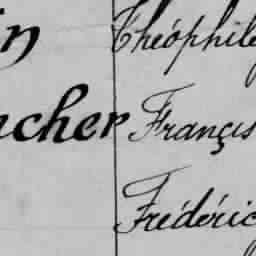 in Théophile
acher Françis
Frédéric